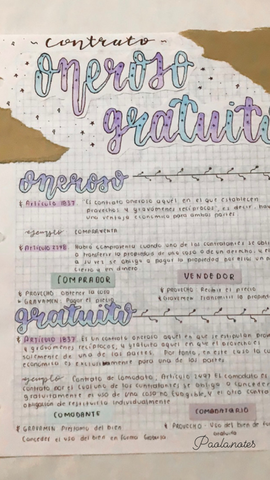 ~ contrato ~
oneroso
gratuito
oneroso
Artículo 1837 El contrato oneroso aquel en el que establecen
provechos y gravámenes recíprocos, es decir,
una ventaja económica para ambas partes
ejemplo COMPRAVENTA
Artículo 2248 Habrá compraventa cuando uno de los contratantes se
a transferir la propiedad de una cosa o de un derecho, y
a su vez se obliga a pagar
cierto y en dinero
COMPRADOR VENDEDOR
PROVECHO Obtener la cosa PROVECHO Recibir el precio
GRAVAMEN Pagar el precio GRAVAMEN
gratuito
Artículo 1837 Es un contrato oneroso aquel en que se estipulan
y gravámenes recíprocos, y gratuito aquel en que el
solamente de una de las partes. Por tanto, en este caso la
económico es exclusivamente para una de las partes.
ejemplo Contrato de comodato, Artículo 2497 El comodato es
contrato por el cual uno de los contratantes se obliga a conceder
gratuitamente el uso de una cosa no fungible, y el otro
obligación de restituirla individualmente
COMODANTE COMODATARIO
GRAVAMEN Préstamo del bien PROVECHO Uso del bien de
Conceder el uso del bien en forma
Paolanotes